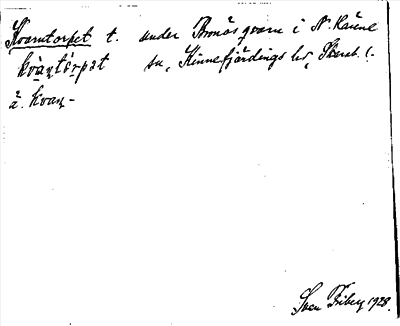 Kvarntorpet t. under Bronäs qvarn i N. Kärene
kvàṇtòrpat sn, Kinnefjärdings hd, Skarab. l.
ä. kvaṇ-
Sven Friberg 1928.